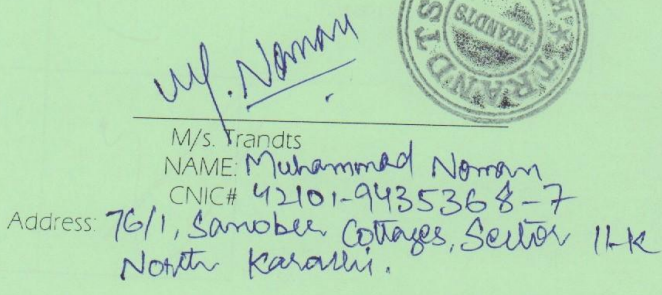 M. Noman
TRANDTS
TRANDTS
M/s. Trandts
NAME: Muhammad Noman
CNIC# 42101-9435368-7
Address: 76/1, Sanober Cottages, Sector 11-K
North Karachi.